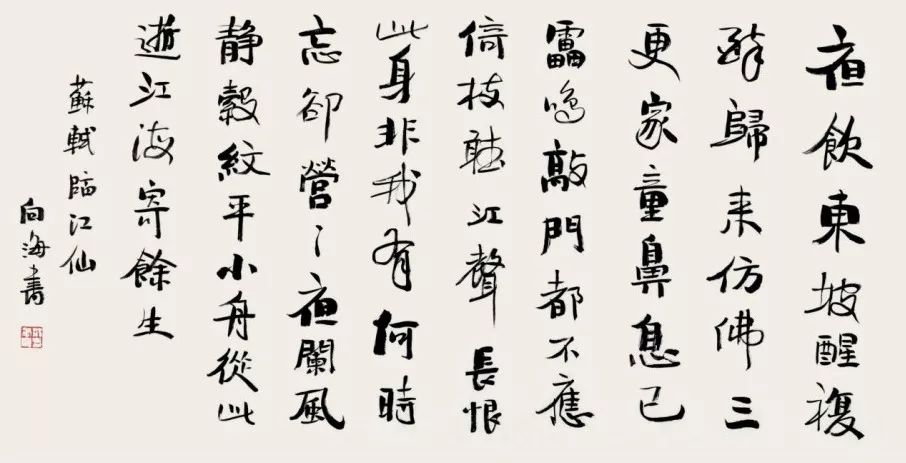 夜飲東坡醒複
醉歸来仿佛三
更家童鼻息已
雷鳴敲門都不應
倚杖聽江聲長恨
此身非我有何時
忘卻營〻夜闌風
静縠紋平小舟從此
逝江海寄餘生
蘇軾臨江仙
向海書